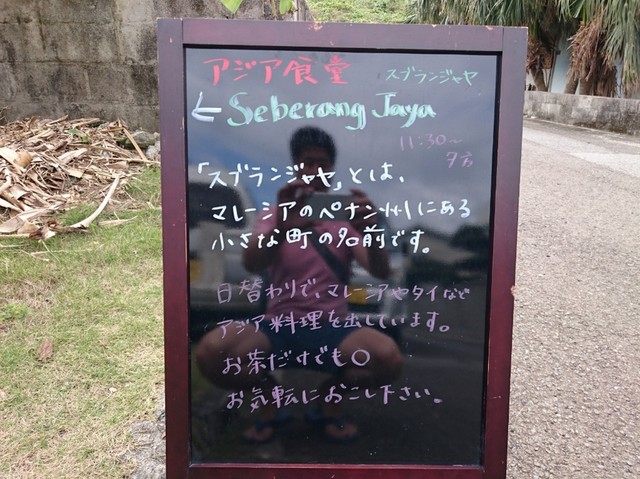 アジア食堂 スブランジャヤ
← Seberang Jaya
11:30～
夕方
「スブランジャヤ」とは、
マレーシアのペナン州にある
小さな町の名前です。
日替わりで、マレーシアやタイなど
アジア料理を出しています。
お茶だけでも○
お気転におこし下さい。